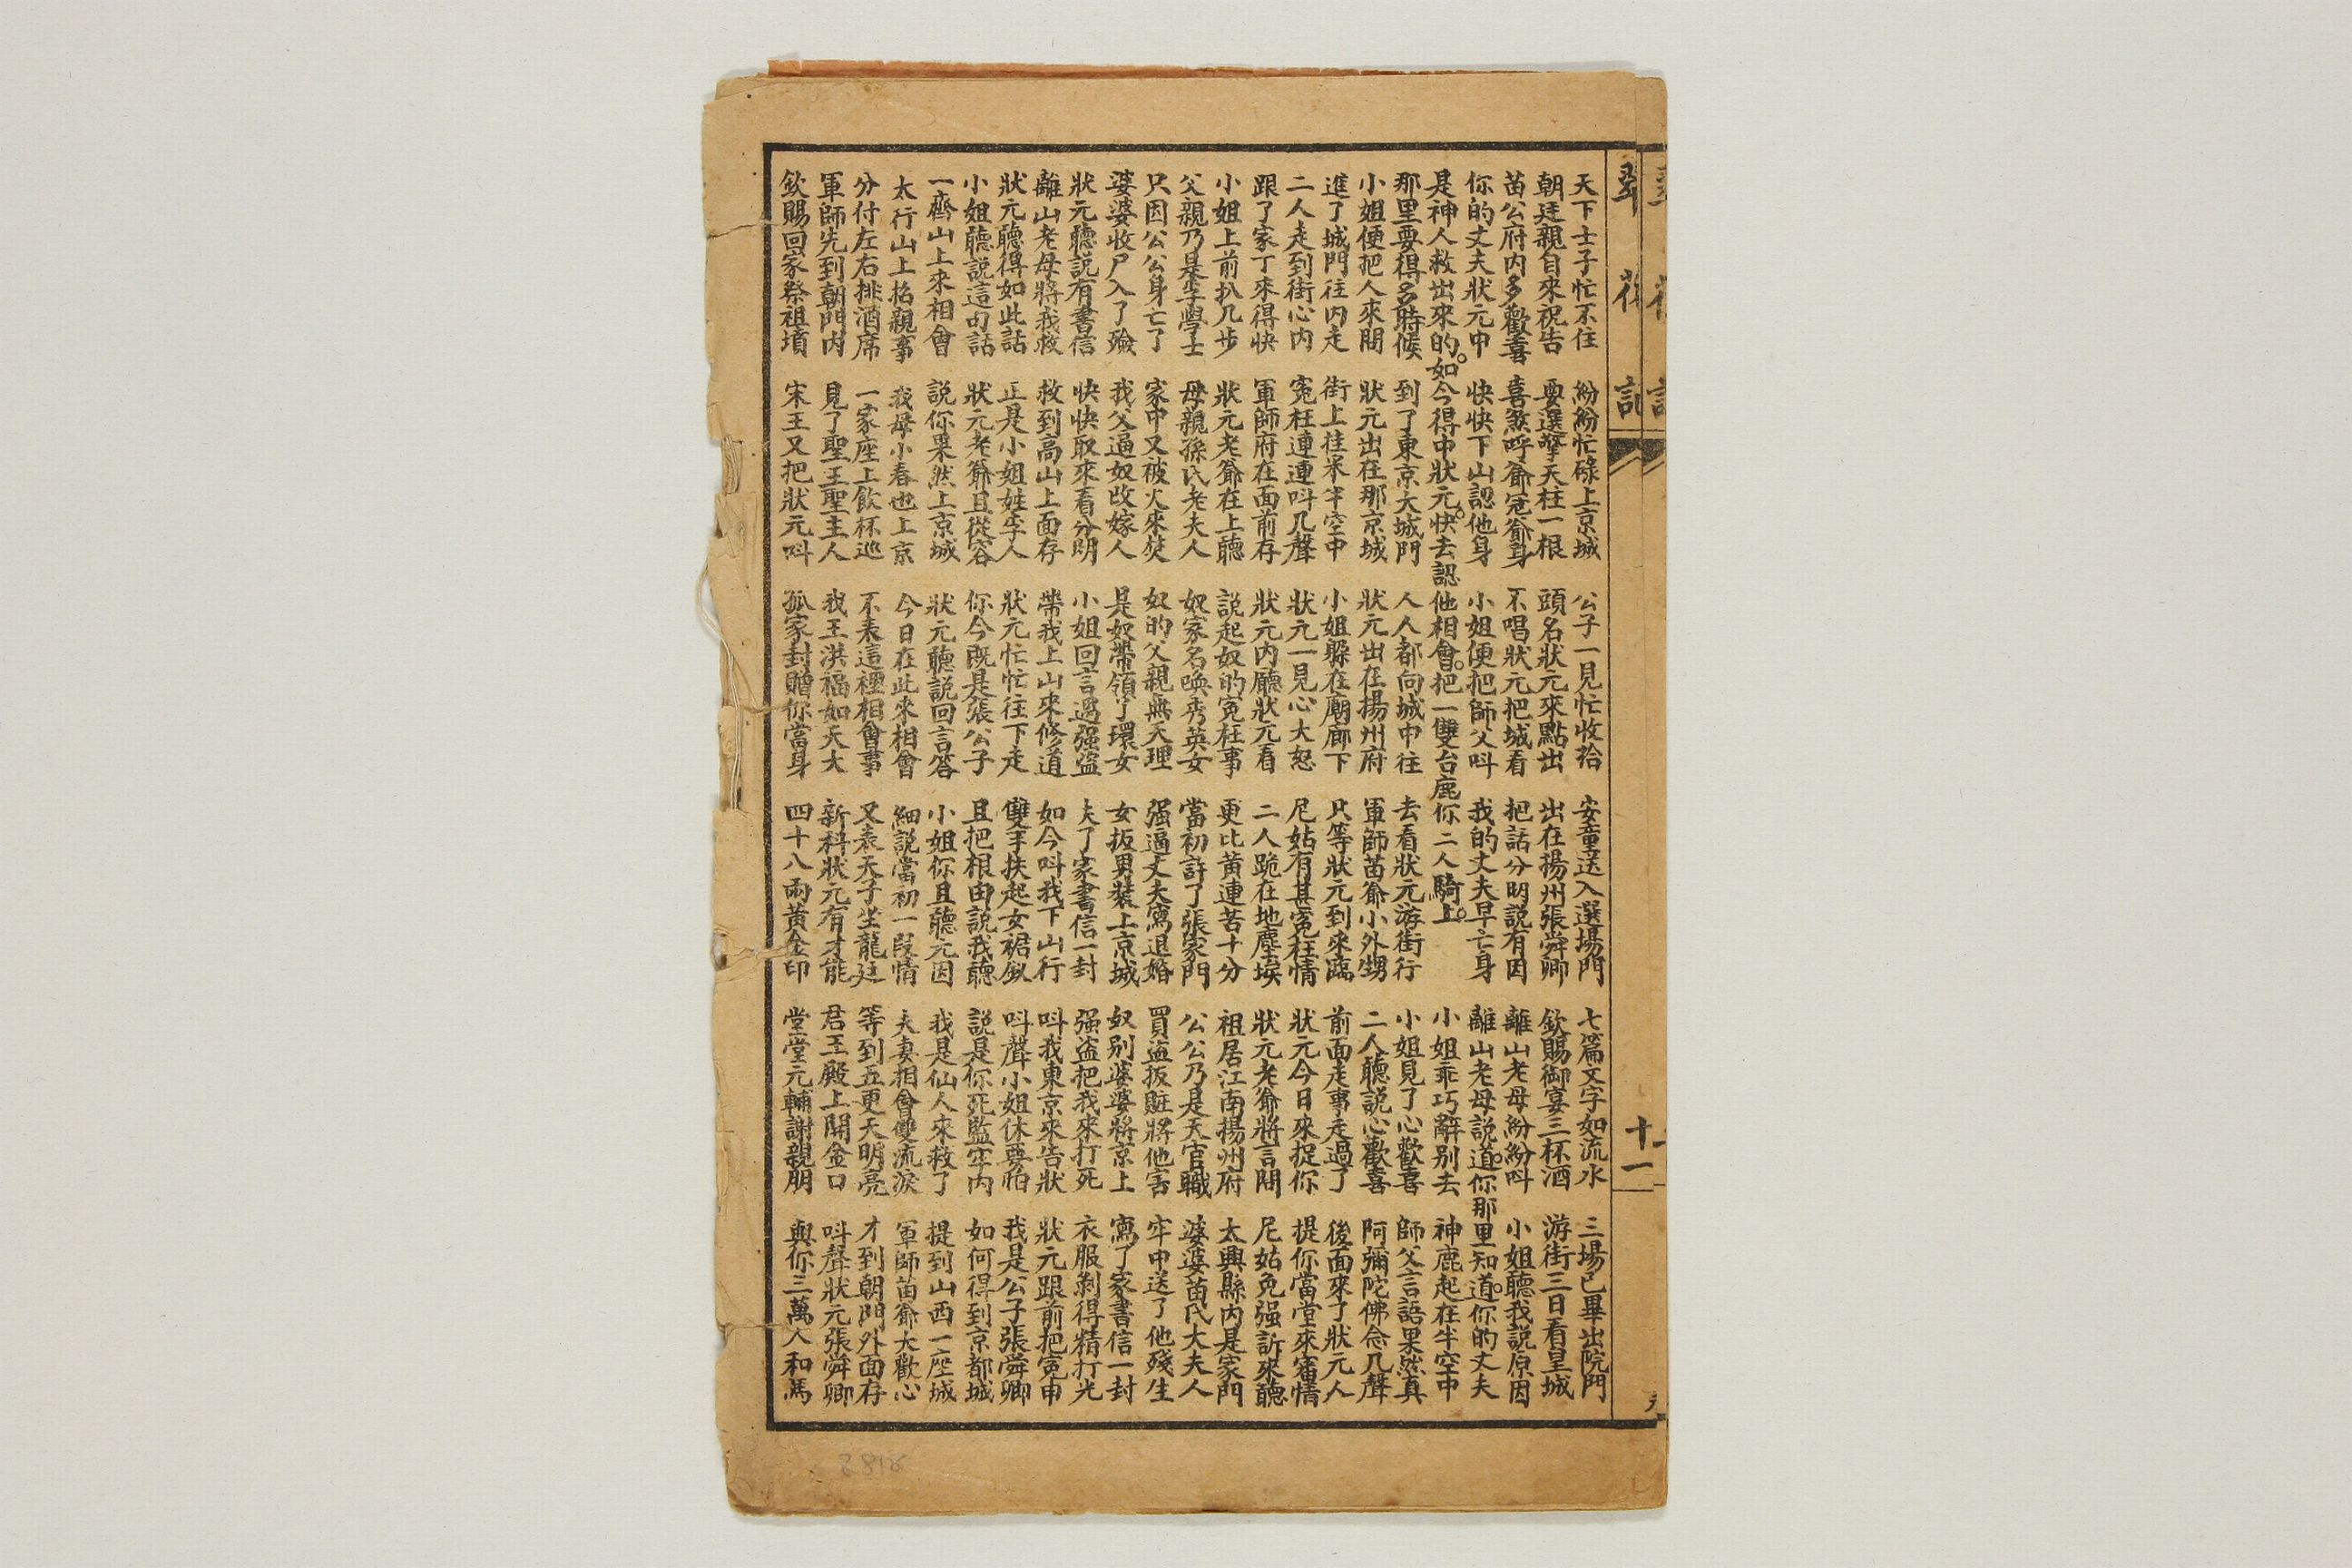 彩
樓
記
十一
天下士子忙不住　紛紛忙碌上京城　公子一見忙收拾　安童送入選場門　七篇文字如流水　三場已畢出院門
朝廷親自來祝告　要選擎天柱一根　頭名狀元來點出　出在揚州張舜卿　欽賜御宴三杯酒　游街三日看皇城
苗公府内多歡喜　喜煞呼爺冠爺身　不唱狀元把城看　把話分明説有因　離山老母紛紛呌　小姐聽我説原因
你的丈夫狀元中　快快下山認他身　小姐便把師父呌　我的丈夫早亡身　離山老母説道。你那里知道。你的丈夫
是神人救出來的。如今得中狀元。快去認他相會。把一雙台鹿你二人騎上。　小姐乖巧辭别去　神鹿起在半空中
那里要得多時候　到了東京大城門　人人都向城中往　去看狀元游街行　小姐見了心歡喜　師父言語果然真
小姐便把人來問　狀元出在那京城　狀元出在揚州府　軍師苗爺小外甥　二人聽説心歡喜　阿彌陀佛念几聲
進了城門往内走　街上往來半空中　小姐躱在廟廊下　只等狀元到來臨　前面走事走過了　後面來了狀元人
二人走到街心内　寃枉連連呌几聲　狀元一見心大怒　尼姑有甚寃枉情　狀元今日來捉你　提你當堂來審情
跟了家丁來得快　軍師府在面前存　狀元内廳狀元看　二人跪在地塵埃　狀元老爺將言問　尼姑免强訴來聽
小姐上前扒几步　狀元老爺在上聽　説起奴的寃枉事　更比黄連苦十分　祖居江南揚州府　太興縣内是家門
父親乃是李學士　母親孫氏老夫人　奴家名喚秀英女　當初許了張家門　公公乃是天官職　婆婆苗氏大夫人
只因公公身亡了　家中又被火來焚　奴的父親無天理　强逼丈夫寫退婚　買盗扳賍將他害　牢中送了他殘生
婆婆收尸入了殮　我父逼奴改嫁人　是奴帶領了環女　女扳男裝上京城　奴别婆婆將京上　寫了家書信一封
狀元聽説有書信　快快取來看分明　小姐回言遇强盗　失了家書信一封　强盗把我來打死　衣服剝得精打光
離山老母將我救　救到高山上面存　帶我上山來修道　如今呌我下山行　呌我東京來告狀　狀元跟前把寃申
狀元聽得如此話　正是小姐姓李人　狀元忙忙往下走　雙手扶起女裙釵　呌聲小姐休要怕　我是公子張舜卿
小姐聽説這句話　狀元老爺且從容　你今既是張公子　且把根由説我聽　説是你死監牢内　如何得到京都城
一齊山上來相會　説你果然上京城　狀元聽説回言答　小姐你且聽元因　我是仙人來救了　提到山西一座城
太行山上招親事　我母小春也上京　今日在此來相會　細説當初一段情　夫妻相會雙流淚　軍師苗爺大歡心
分付左右排酒席　一家座上飲杯巡　不表這裡相會事　又表天子坐龍廷　等到五更天明亮　才到朝門外面存
軍師先到朝門内　見了聖王聖主人　我王洪福如天大　新科狀元有才能　君王殿上開金口　呌聲狀元張舜卿
欽賜回家祭祖墳　宋王又把狀元呌　孤家封贈你當身　四十八兩黄金印　堂堂元輔謝親朋　與你三萬人和馬